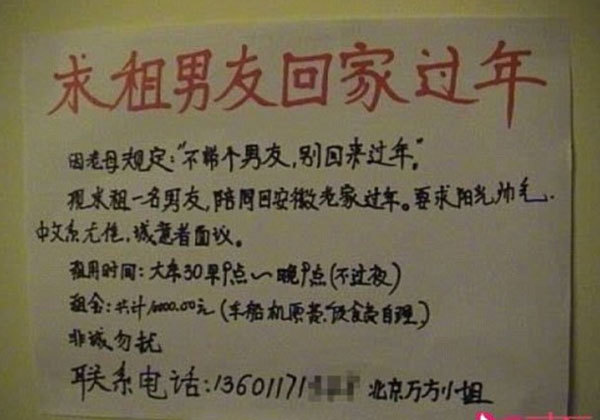 求租男友回家过年
因老母规定:"不带个男友,别回来过年"。
现求租一名男友,陪同回安徽老家过年。要求阳光帅气、
中文系尤佳,诚意者面议。
租用时间:大年30早9点~晚9点(不过夜)
租金:共计1000.00元(车船机票费、饮食费自理)
非诚勿扰
联系电话:13601171 北京万方小姐